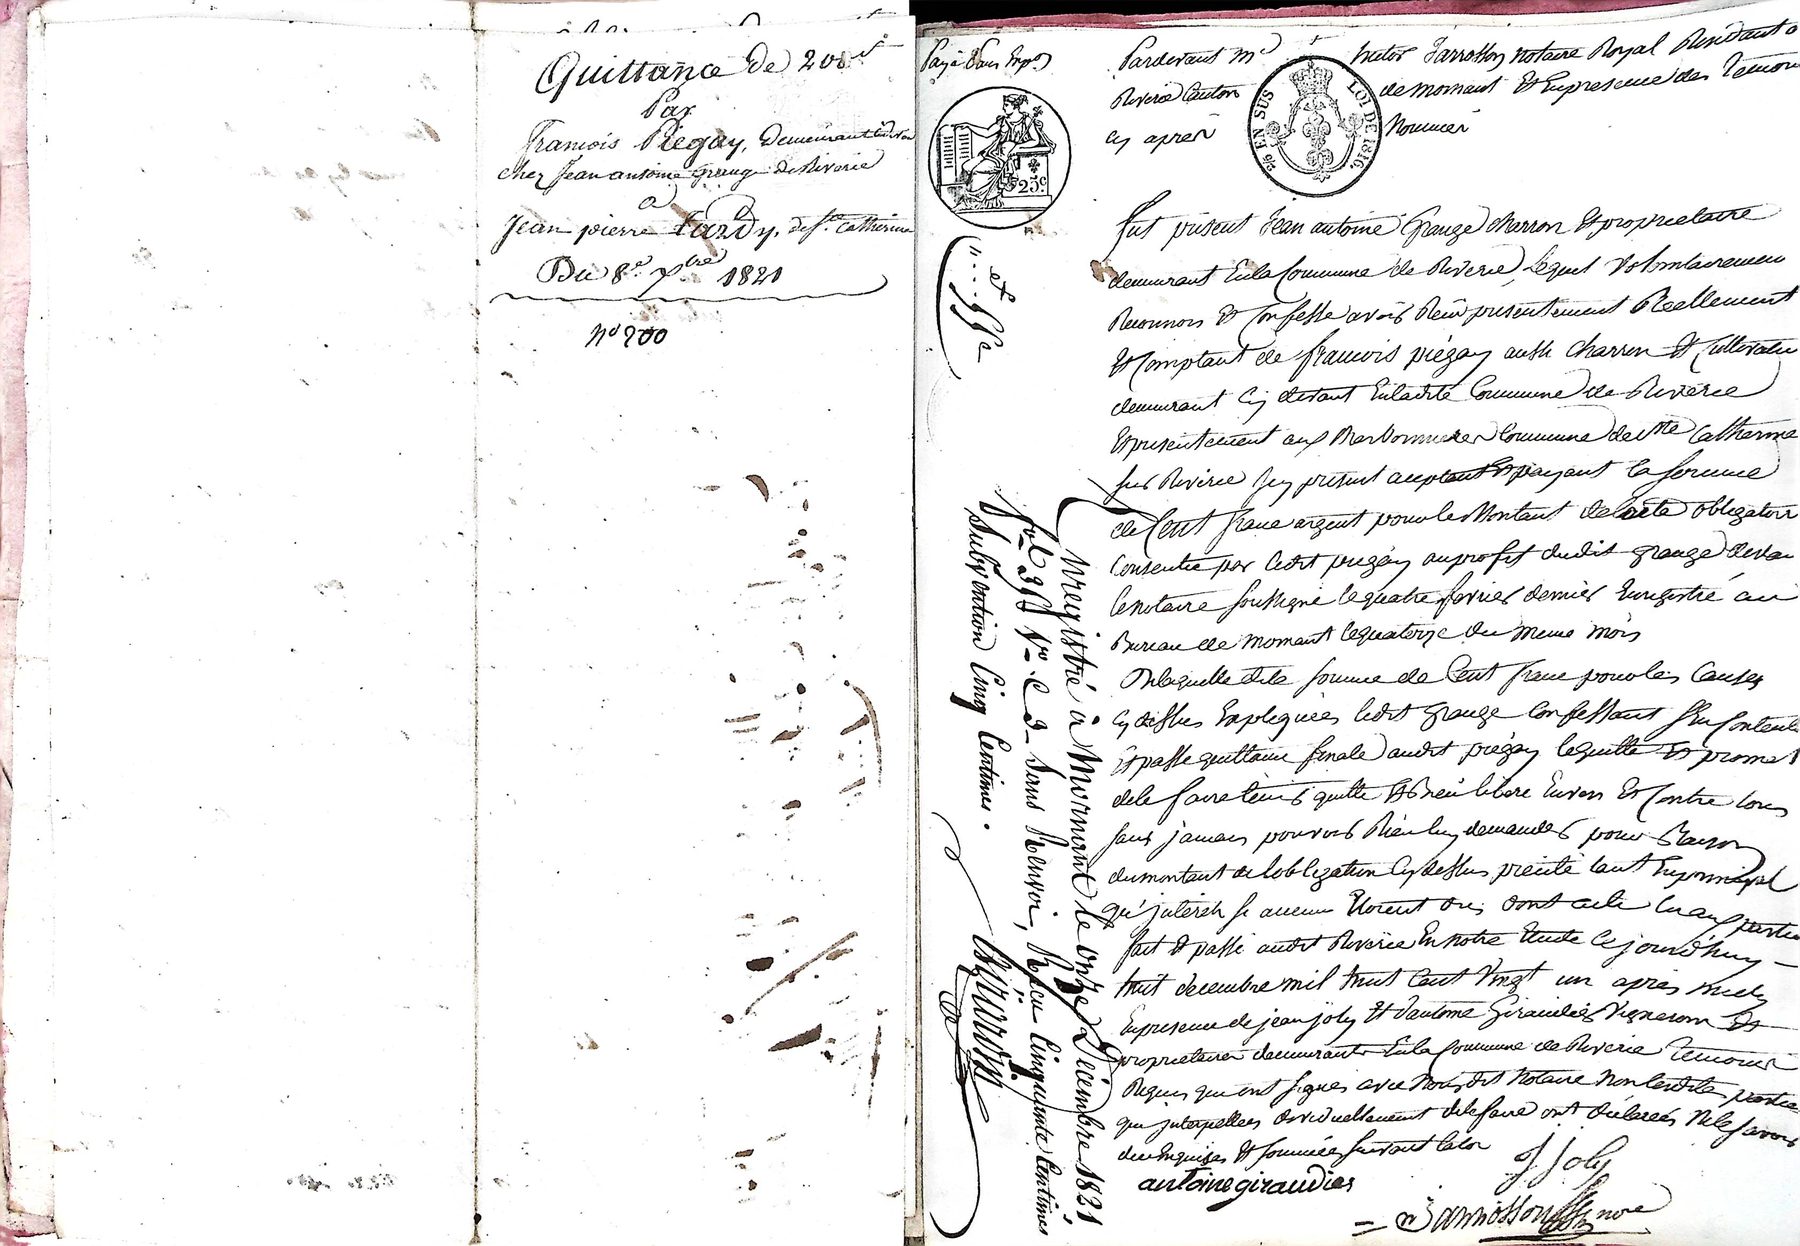 Quittance de 200 ft
Par
francois Piegay, demeurant
chez Jean antoine grange de Riverie
a
Jean pierre tardy, de Ste catherine
Du 8e 7bre 1821
no 200
Pardevant Me hector Jarrosson notaire Royal Residant a
Riverie Canton de mornant Et En presence des Temoins
cy après Nommés
9/16 EN SUS LOI DE 1816.
25c
fut présent Jean antoine Grange charron Et proprietaire
demeurant En la Commune de Riverie, lequel volontairement
Reconnois Et Confesse avoir Reçu presentement Reellement
Et Comptant de francois piégay aussi charron Et Cultivateur
demeurant cy devant En ladite Commune de Riverie
Et presentement aux Commune de Ste Catherine
sur Riverie icy présent acceptant Et payant la somme
de Cent franc argent pour le Montant de obligation
Consentie par ledit piegay au profit dudit grange devant
le notaire soussigné le quatre fevrier dernier Enregistré au
Bureau de Mornant le quatorze du meme mois
De laquelle dite somme de Cent franc pour les causes
cy dessus Expliquées ledit grange Confessant s'en Contente
Et passe quittance finale audit piégay le quitte Et promet
de le faire tenir quitte Et Bien libere Envers Et Contre tous
sans jamais pouvoir Rien luy demander pour Raison
du montant de l'obligation cy dessus précité tant En principal
qu'interets si aucun Etoient dus dont acte aux parties
fait Et passé audit Riverie En notre Etude Ce jourd'huy
huit decembre mil huit Cent vingt un après midy
En presence de jean joly Et d'antoine Giraudier vigneron Et
proprietaires demeurants En la Commune de Riverie Temoins
Requis qui ont signés avec Nous dit Notaire Non lesdites parties
qui interpellées individuellement de le faire ont déclarées Ne le savoir
de ce Enquises Et sommées suivant la loi
J Joly
antoine giraudier
Jarrosson nore
Enregistré à Mornant le onze Décembre 1821
fol 39 Vo C 2 sans Renvoi, Reçu Cinquante Centimes
Subvention Cinq Centimes.